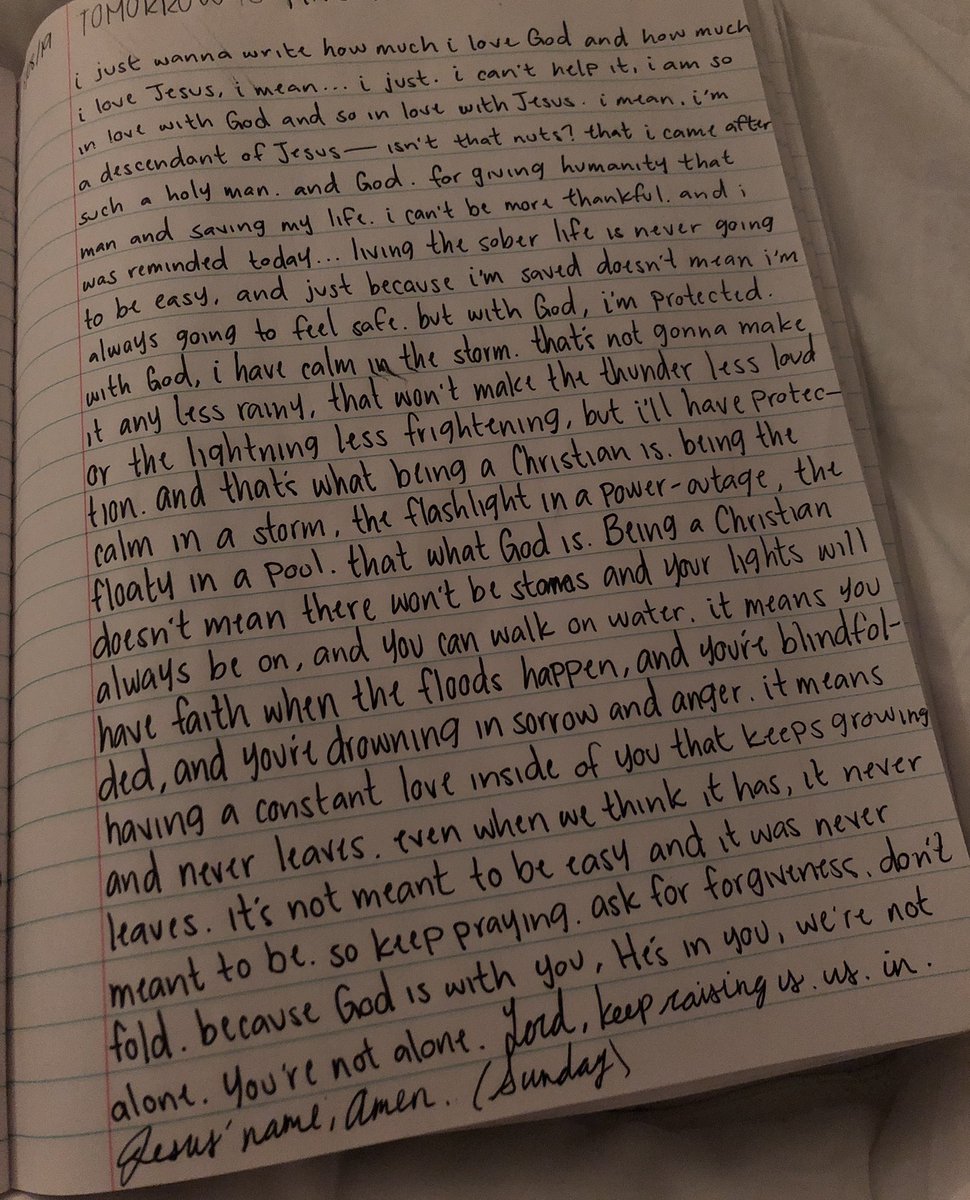 TOMORROW
i just wanna write how much i love God and how much
i love Jesus, i mean... i just. i can't help it, i am so
in love with God and so in love with Jesus. i mean. i'm
a descendant of Jesus — isn't that nuts? that i came after
such a holy man. and God. for giving humanity that
man and saving my life. i can't be more thankful. and i
was reminded today... living the sober life is never going
to be easy, and just because i'm saved doesn't mean i'm
always going to feel safe. but with God, i'm protected.
with God, i have calm in the storm. that's not gonna make
it any less rainy, that won't make the thunder less loud
or the lightning less frightening, but i'll have protec-
tion. and that's what being a Christian is. being the
calm in a storm, the flashlight in a power-outage, the
floaty in a pool. that what God is. Being a Christian
doesn't mean there won't be storms and your lights will
always be on, and you can walk on water. it means you
have faith when the floods happen, and you're blindfol-
ded, and you're drowning in sorrow and anger. it means
having a constant love inside of you that keeps growing
and never leaves. even when we think it has, it never
leaves. it's not meant to be easy and it was never
meant to be. so keep praying. ask for forgiveness. don't
fold. because God is with you, He's in you, we're not
alone. You're not alone. Lord, keep raising us. us. in.
Jesus' name, Amen. (Sunday)